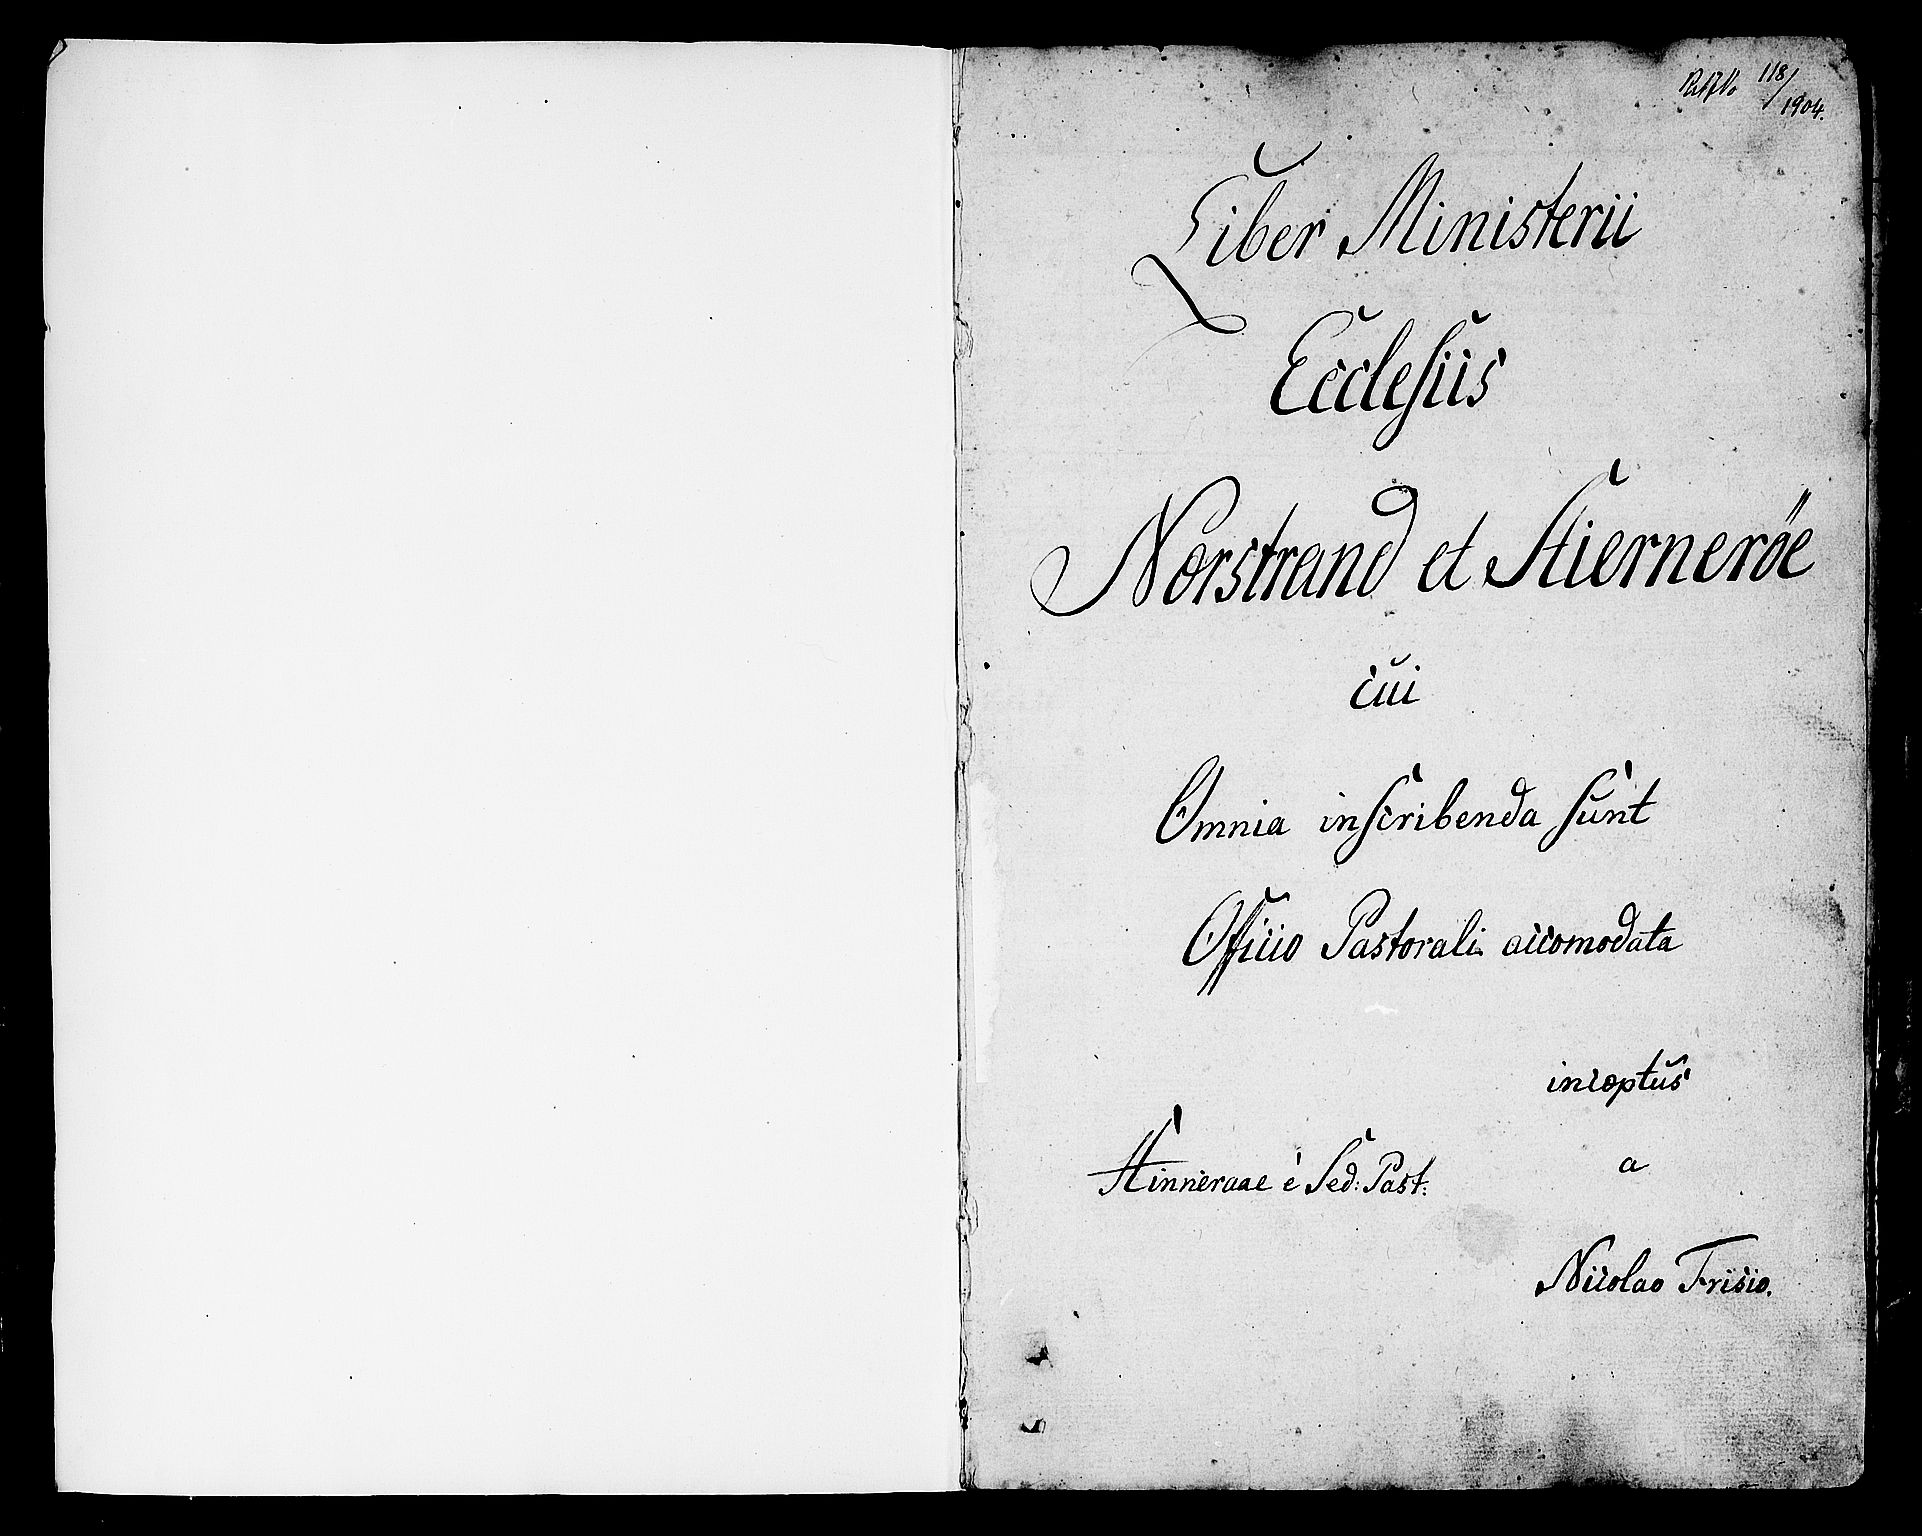 118/1904.
Liber Ministerii
Ecclesiis
Nørstrand et Hiernerøe
cui
Omnia inscribenda sunt
Officio Pastorali accomodata
incoptus
Hinneraae è Sed: Past:
a
Nicolao Frisio.